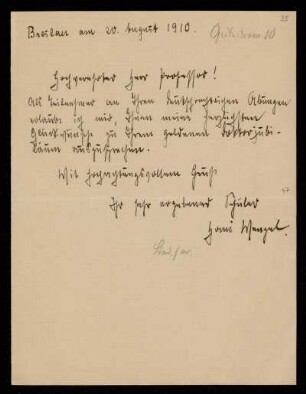 Breslau am 20. August 1910.
Hochverehrter Herr Professor!
Als Teilnehmer an Ihren deutschrechtlichen Übungen
erlaube ich mir, Ihnen meine herzlichsten
Glückwünsche zu Ihrem goldenen Doktorjubi-
läum auszusprechen.
Mit hochachtungsvollem Gruß
Ihr sehr ergebener Schüler
Hans Wenzel.